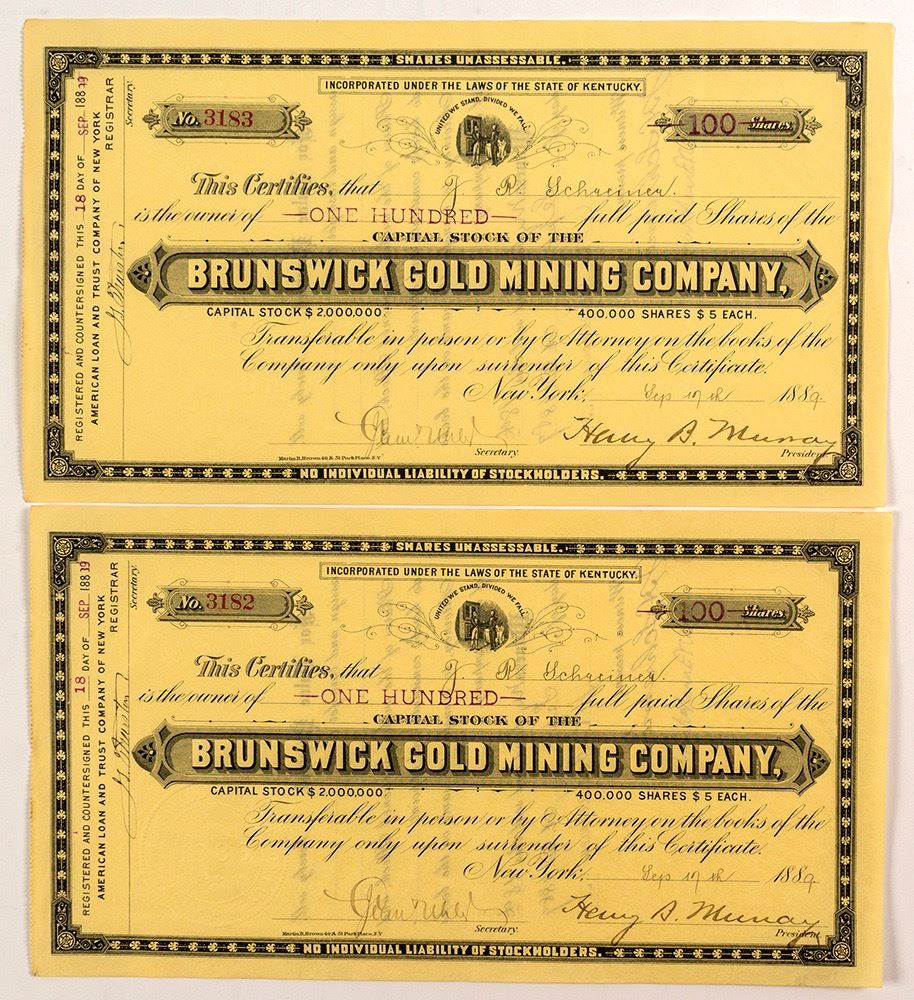 SHARES UNASSESSABLE.
INCORPORATED UNDER THE LAWS OF THE STATE OF KENTUCKY.
REGISTERED AND COUNTERSIGNED THIS 18 DAY OF SEP 188 19
AMERICAN LOAN AND TRUST COMPANY OF NEW YORK
REGISTRAR
Secretary.
No. 3183
UNITED WE STAND, DIVIDED WE FALL
100 Shares
This Certifies, that J. R. Schreiner.
is the owner of —ONE HUNDRED— full paid Shares of the
CAPITAL STOCK OF THE
BRUNSWICK GOLD MINING COMPANY,
CAPITAL STOCK $2.000.000. 400.000 SHARES $5 EACH.
Transferable in person or by Attorney on the books of the
Company only upon surrender of this Certificate.
New York, Sep 17th 1889.
Henry B. Murray
Secretary. President
Martin B. Brown 49 & 51 Park Place, N.Y
NO INDIVIDUAL LIABILITY OF STOCKHOLDERS.
SHARES UNASSESSABLE.
INCORPORATED UNDER THE LAWS OF THE STATE OF KENTUCKY.
REGISTERED AND COUNTERSIGNED THIS 18 DAY OF SEP 188 19
AMERICAN LOAN AND TRUST COMPANY OF NEW YORK
REGISTRAR
Secretary.
No. 3182
UNITED WE STAND, DIVIDED WE FALL
100 Shares
This Certifies, that J. R. Schreiner.
is the owner of —ONE HUNDRED— full paid Shares of the
CAPITAL STOCK OF THE
BRUNSWICK GOLD MINING COMPANY,
CAPITAL STOCK $2.000.000. 400.000 SHARES $5 EACH.
Transferable in person or by Attorney on the books of the
Company only upon surrender of this Certificate.
New York, Sep 17th 1889.
Henry B. Murray
Secretary. President
Martin B. Brown 49 & 51 Park Place, N.Y
NO INDIVIDUAL LIABILITY OF STOCKHOLDERS.